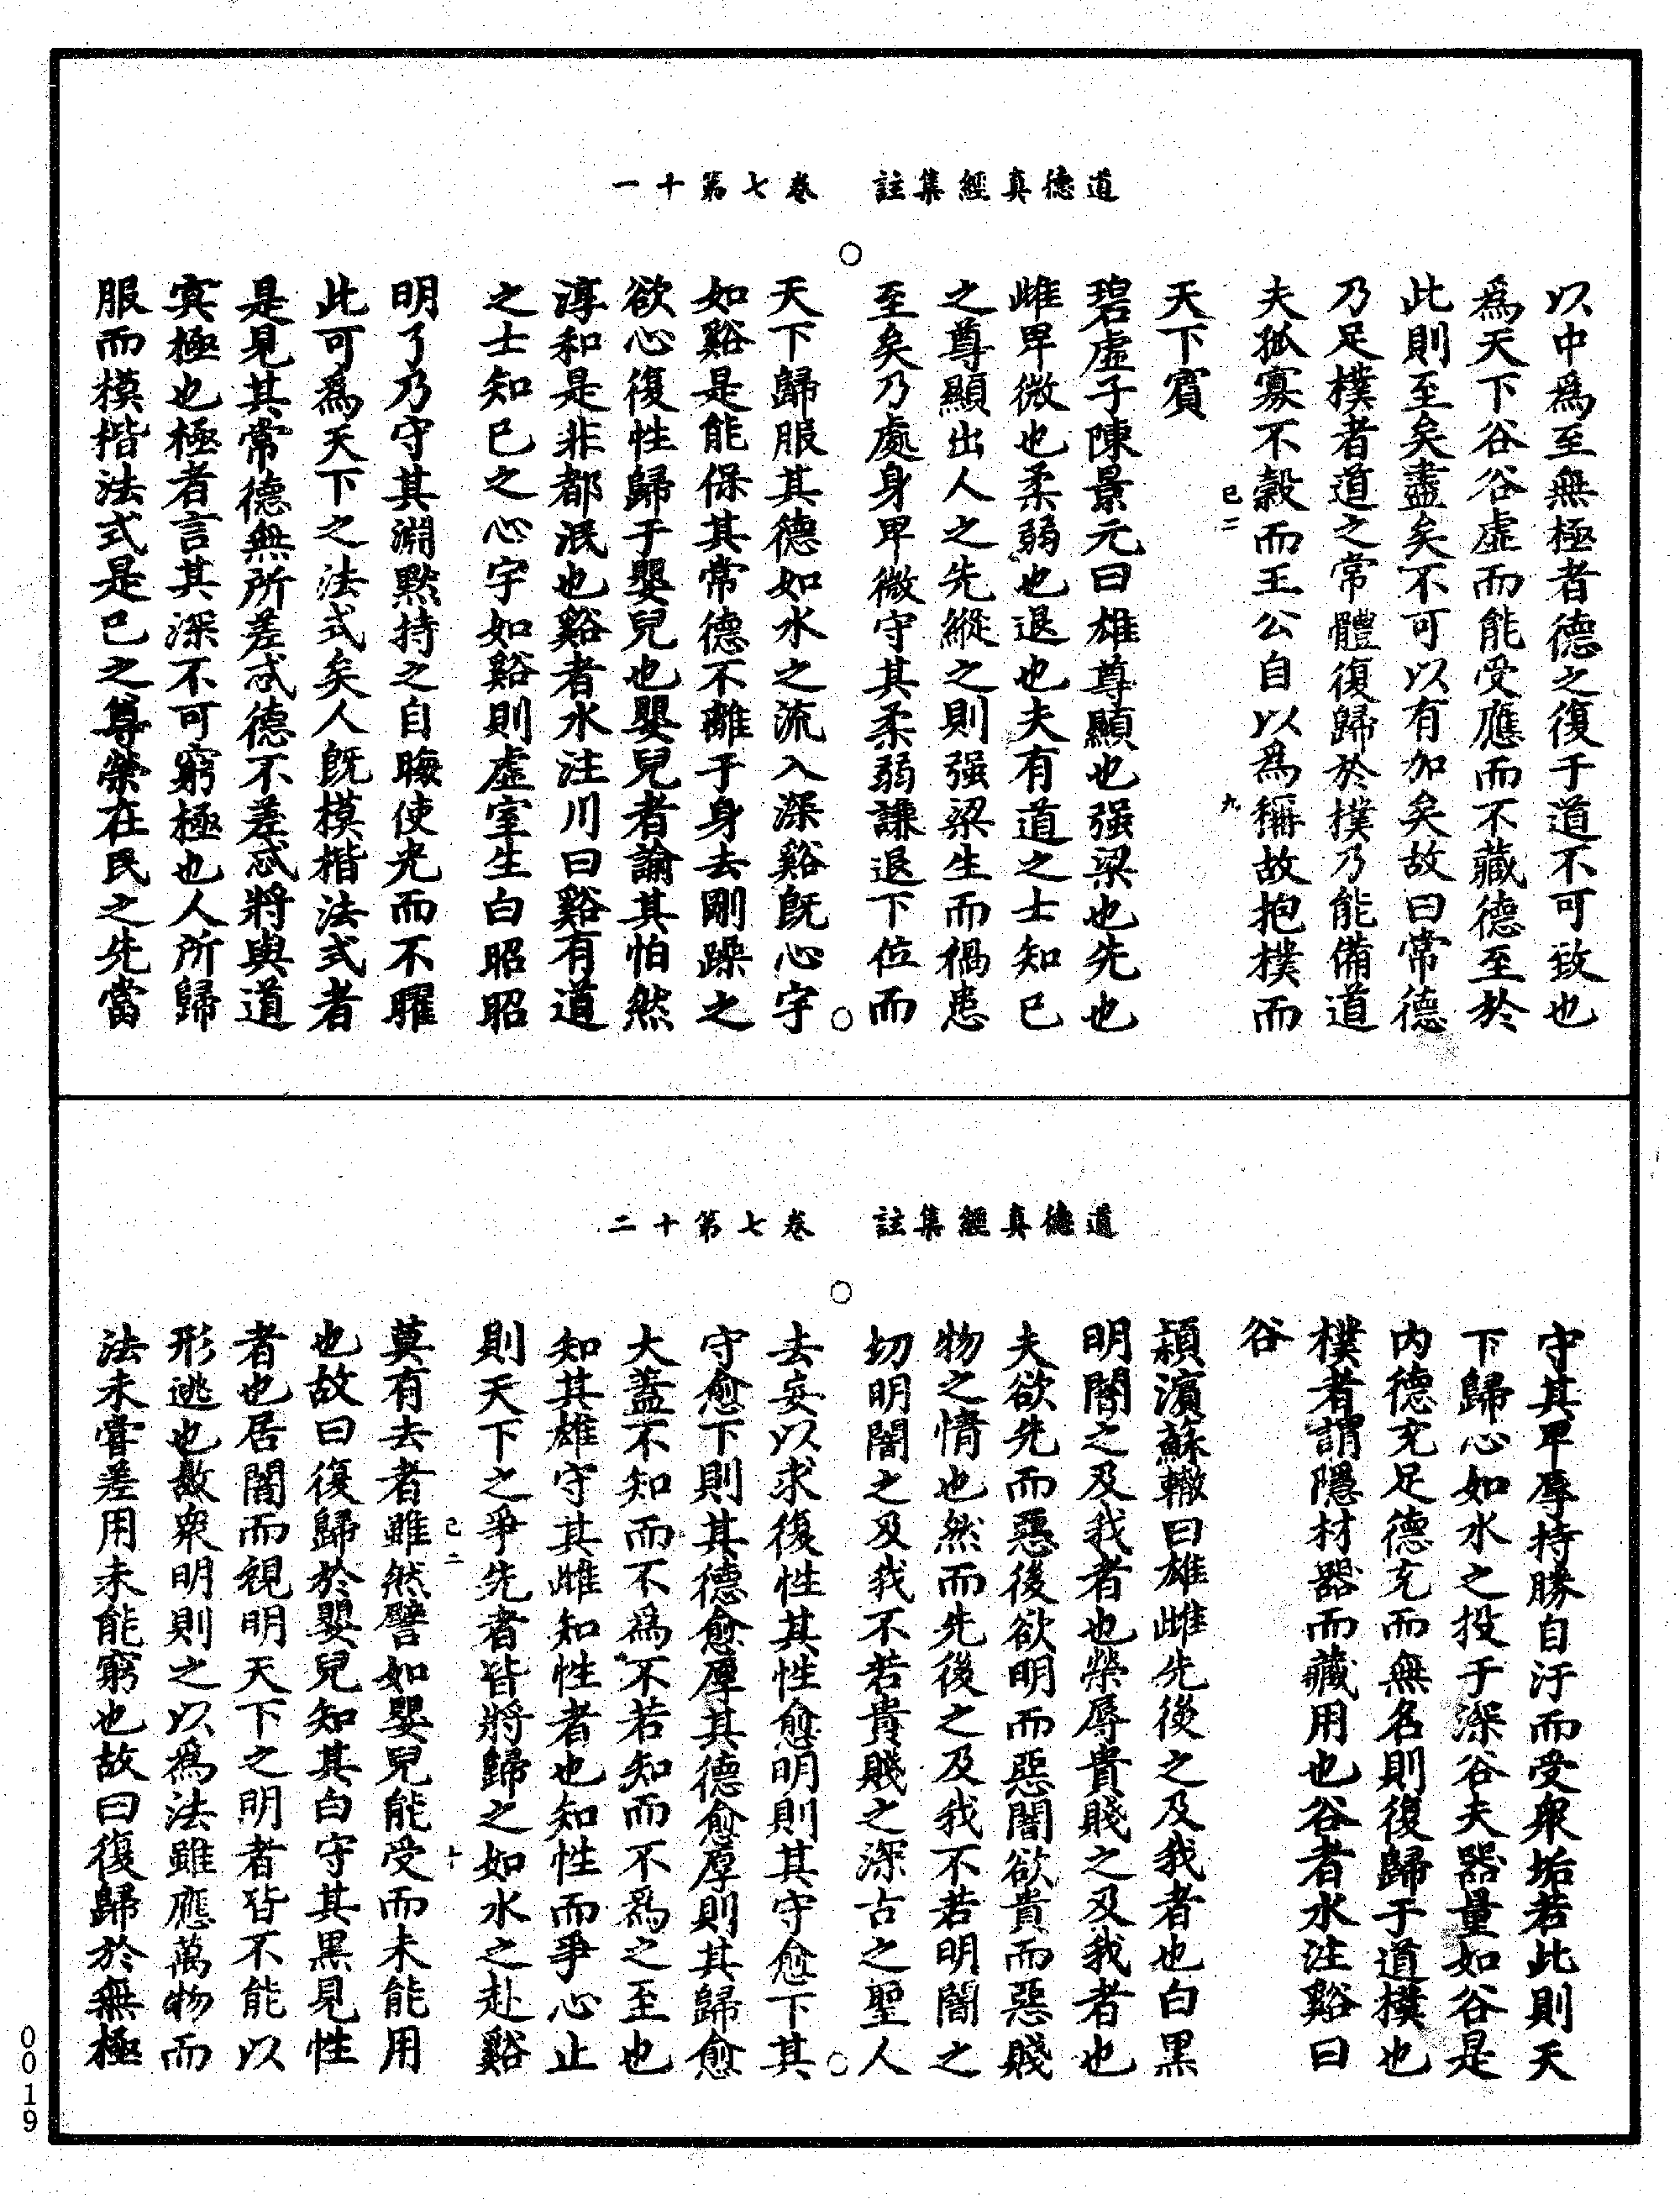 道德真經集註　卷七第十一
以中爲至無極者德之復于道不可致也
爲天下谷谷虛而能受應而不藏德至於
此則至矣盡矣不可以有加矣故曰常德
乃足樸者道之常體復歸於樸乃能備道
夫孤寡不穀而王公自以爲稱故抱樸而
天下賓
己二
九
碧虛子陳景元曰雄尊顯也强梁也先也
雌卑微也柔弱也退也夫有道之士知己
之尊顯出人之先縱之則强梁生而禍患
至矣乃處身卑微守其柔弱謙退下位而
天下歸服其德如水之流入深谿旣心宇
如谿是能保其常德不離于身去剛躁之
欲心復性歸于嬰兒也嬰兒者諭其怕然
淳和是非都泯也谿者水注川曰谿有道
之士知己之心宇如谿則虛室生白昭昭
明了乃守其淵默持之自晦使光而不曜
此可爲天下之法式矣人旣模楷法式者
是見其常德無所差忒德不差忒將與道
冥極也極者言其深不可窮極也人所歸
服而模楷法式是己之尊榮在民之先當
道德真經集註　卷七第十二
守其卑辱持勝自汙而受衆垢若此則天
下歸心如水之投于深谷夫器量如谷是
内德充足德充而無名則復歸于道樸也
樸者謂隱材器而藏用也谷者水注谿曰
谷
頴濱蘇轍曰雄雌先後之及我者也白黑
明闇之及我者也榮辱貴賤之及我者也
夫欲先而惡後欲明而惡闇欲貴而惡賤
物之情也然而先後之及我不若明闇之
切明闇之及我不若貴賤之深古之聖人
去妄以求復性其性愈明則其守愈下其
守愈下則其德愈厚其德愈厚則其歸愈
大蓋不知而不爲不若知而不爲之至也
知其雄守其雌知性者也知性而爭心止
則天下之爭先者皆將歸之如水之赴谿
己二
十
莫有去者雖然譬如嬰兒能受而未能用
也故曰復歸於嬰兒知其白守其黑見性
者也居闇而視明天下之明者皆不能以
形逃也故衆明則之以爲法雖應萬物而
法未嘗差用未能窮也故曰復歸於無極
0019